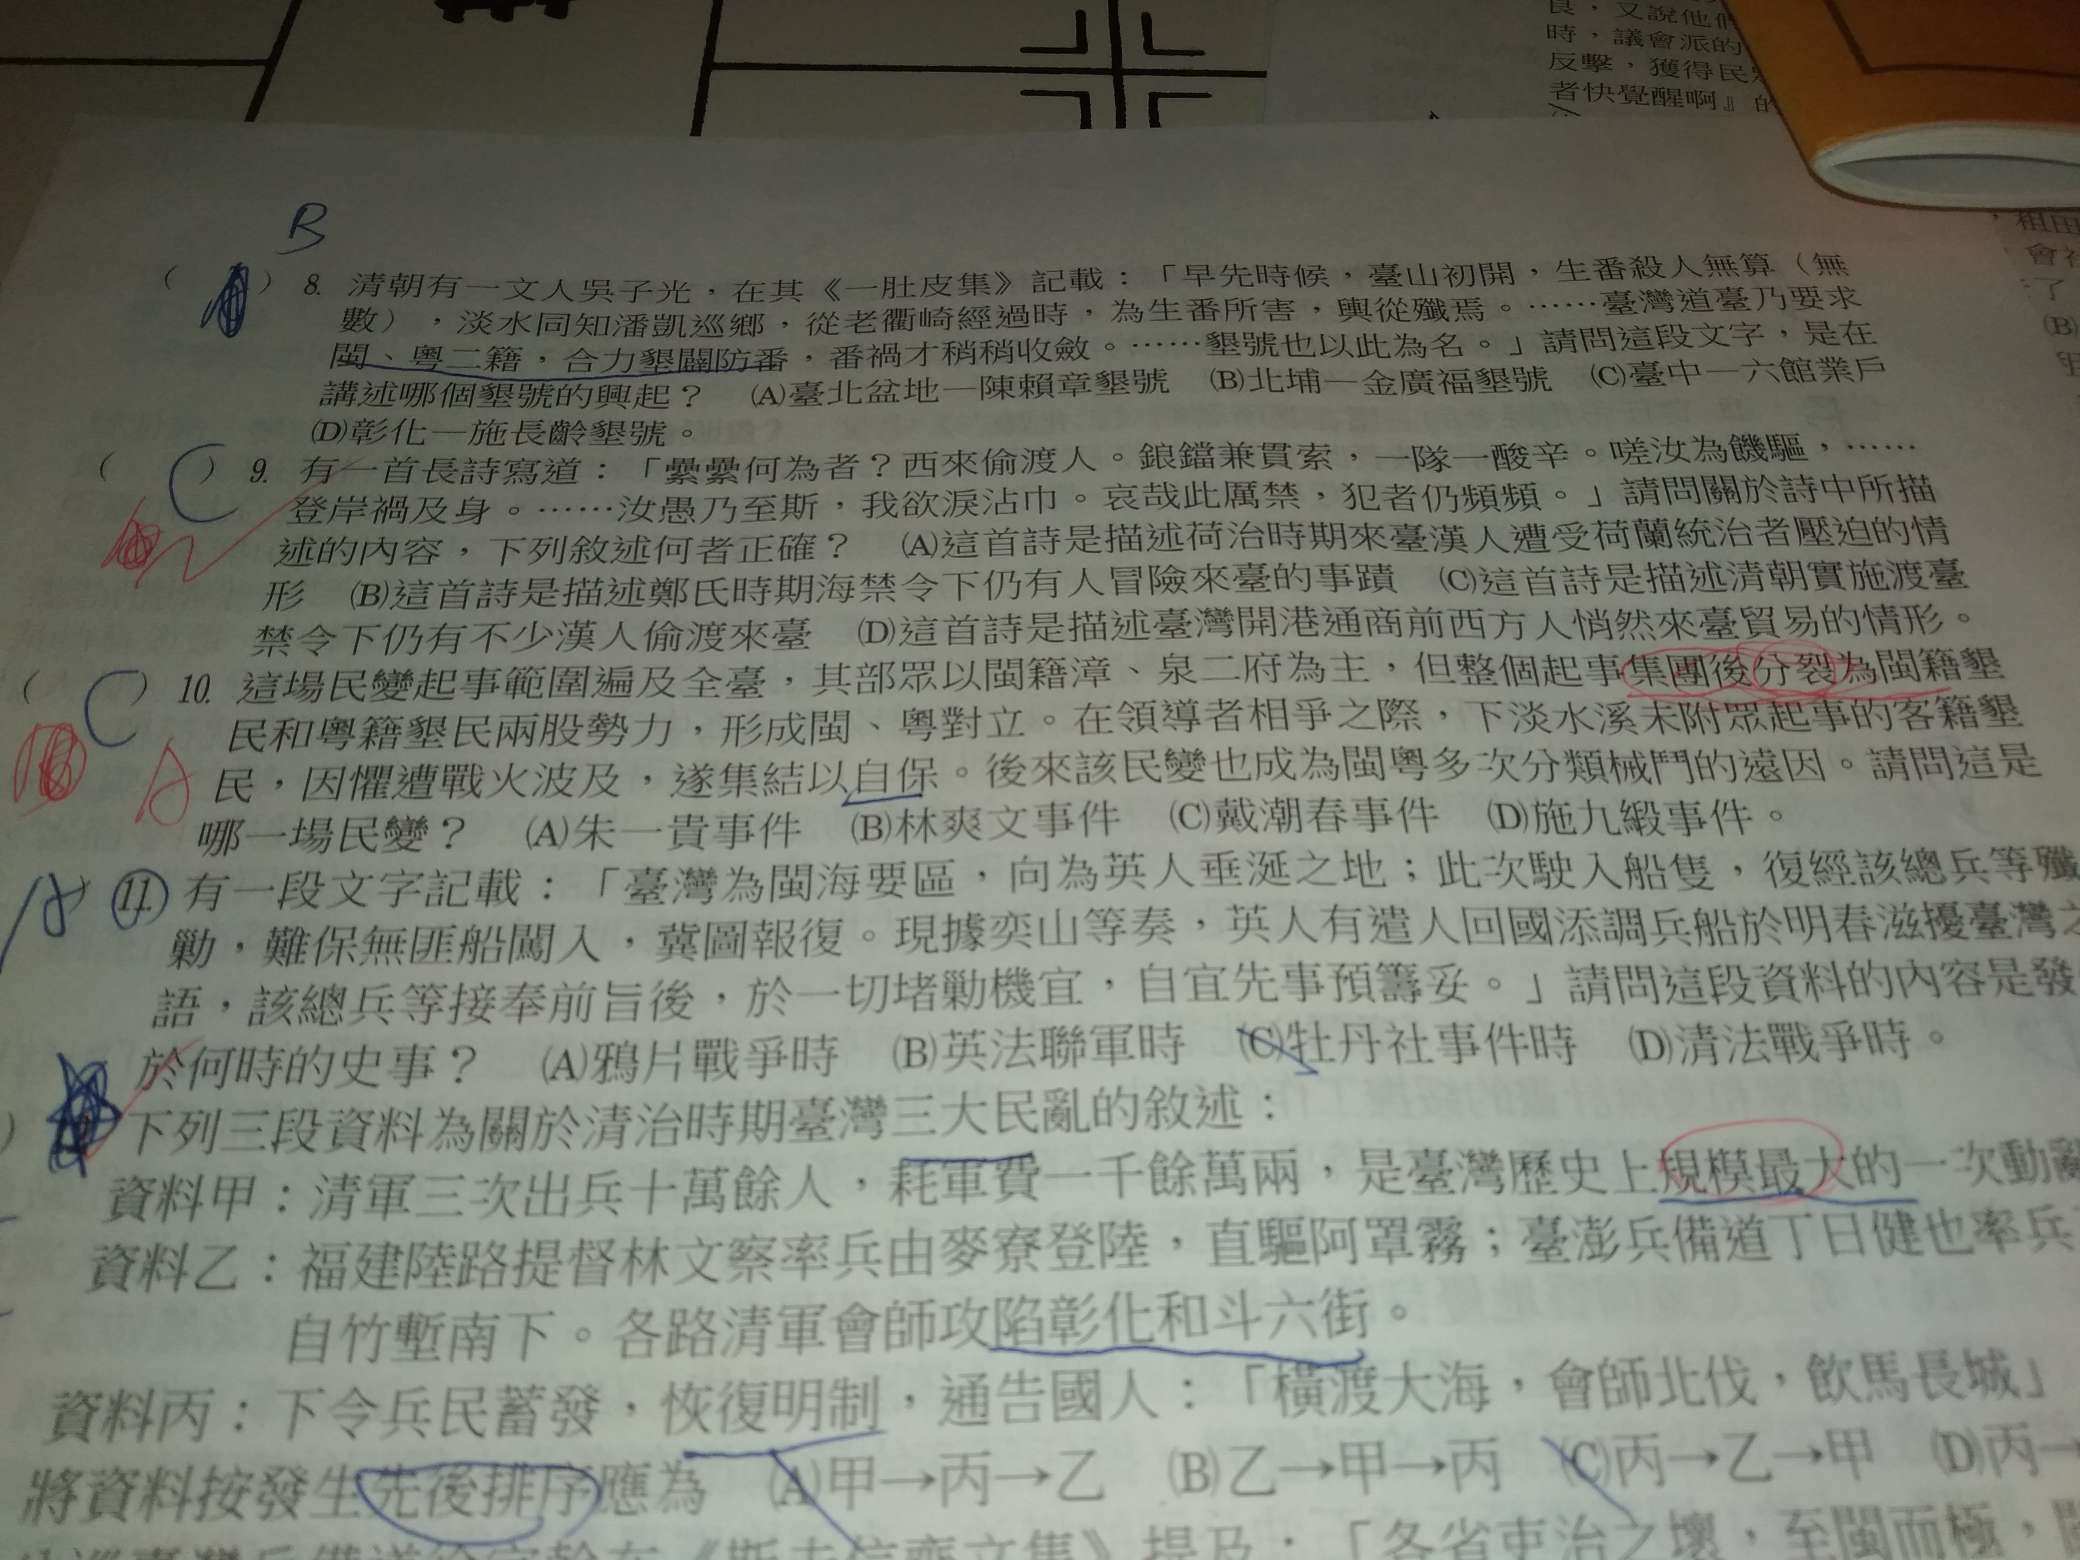 良，又說他們
時，議會派的
反擊，獲得民眾
者快覺醒啊』的
B
( ) 8. 清朝有一文人吳子光，在其《一肚皮集》記載：「早先時候，臺山初開，生番殺人無算（無
數），淡水同知潘凱巡鄉，從老衢崎經過時，為生番所害，輿從殲焉。……臺灣道臺乃要求
閩、粵二籍，合力墾闢防番，番禍才稍稍收斂。……墾號也以此為名。」請問這段文字，是在
講述哪個墾號的興起？ (A)臺北盆地—陳賴章墾號 (B)北埔—金廣福墾號 (C)臺中—六館業戶
(D)彰化—施長齡墾號。
( C ) 9. 有一首長詩寫道：「纍纍何為者？西來偷渡人。鋃鐺兼貫索，一隊一酸辛。嗟汝為饑驅，……
登岸禍及身。……汝愚乃至斯，我欲淚沾巾。哀哉此厲禁，犯者仍頻頻。」請問關於詩中所描
述的內容，下列敘述何者正確？ (A)這首詩是描述荷治時期來臺漢人遭受荷蘭統治者壓迫的情
形 (B)這首詩是描述鄭氏時期海禁令下仍有人冒險來臺的事蹟 (C)這首詩是描述清朝實施渡臺
禁令下仍有不少漢人偷渡來臺 (D)這首詩是描述臺灣開港通商前西方人悄然來臺貿易的情形。
( C ) 10. 這場民變起事範圍遍及全臺，其部眾以閩籍漳、泉二府為主，但整個起事集團後分裂為閩籍墾
民和粵籍墾民兩股勢力，形成閩、粵對立。在領導者相爭之際，下淡水溪未附眾起事的客籍墾
A 民，因懼遭戰火波及，遂集結以自保。後來該民變也成為閩粵多次分類械鬥的遠因。請問這是
哪一場民變？ (A)朱一貴事件 (B)林爽文事件 (C)戴潮春事件 (D)施九緞事件。
A ) 11. 有一段文字記載：「臺灣為閩海要區，向為英人垂涎之地；此次駛入船隻，復經該總兵等殲
勦，難保無匪船闖入，冀圖報復。現據奕山等奏，英人有遣人回國添調兵船於明春滋擾臺灣之
語，該總兵等接奉前旨後，於一切堵勦機宜，自宜先事預籌妥。」請問這段資料的內容是發
於何時的史事？ (A)鴉片戰爭時 (B)英法聯軍時 (C)牡丹社事件時 (D)清法戰爭時。
) 下列三段資料為關於清治時期臺灣三大民亂的敘述：
資料甲：清軍三次出兵十萬餘人，耗軍費一千餘萬兩，是臺灣歷史上規模最大的一次動亂
資料乙：福建陸路提督林文察率兵由麥寮登陸，直驅阿罩霧；臺澎兵備道丁日健也率兵
自竹塹南下。各路清軍會師攻陷彰化和斗六街。
資料丙：下令兵民蓄發，恢復明制，通告國人：「橫渡大海，會師北伐，飲馬長城」
將資料按發生先後排序應為 (A)甲→丙→乙 (B)乙→甲→丙 (C)丙→乙→甲 (D)丙→
提及：「各省吏治之壞，至閩而極，